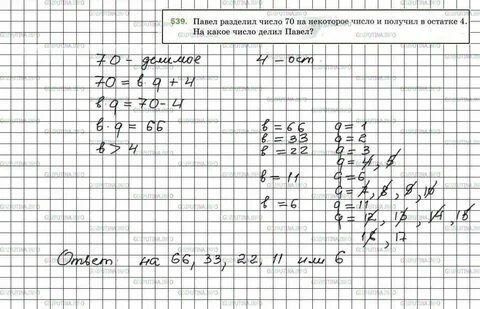 539. Павел разделил число 70 на некоторое число и получил в остатке 4.
На какое число делил Павел?
70 - делимое 4 - ост.
70 = в · q + 4
в q = 70 - 4
в · q = 66
в > 4
в = 66 q = 1
в = 33 q = 2
в = 22 q = 3
q = 4, 5
в = 11 q = 6
q = 7, 8, 9, 10
в = 6 q = 11
q = 12, 13, 14, 15
16, 17
Ответ на 66, 33, 22, 11 или 6